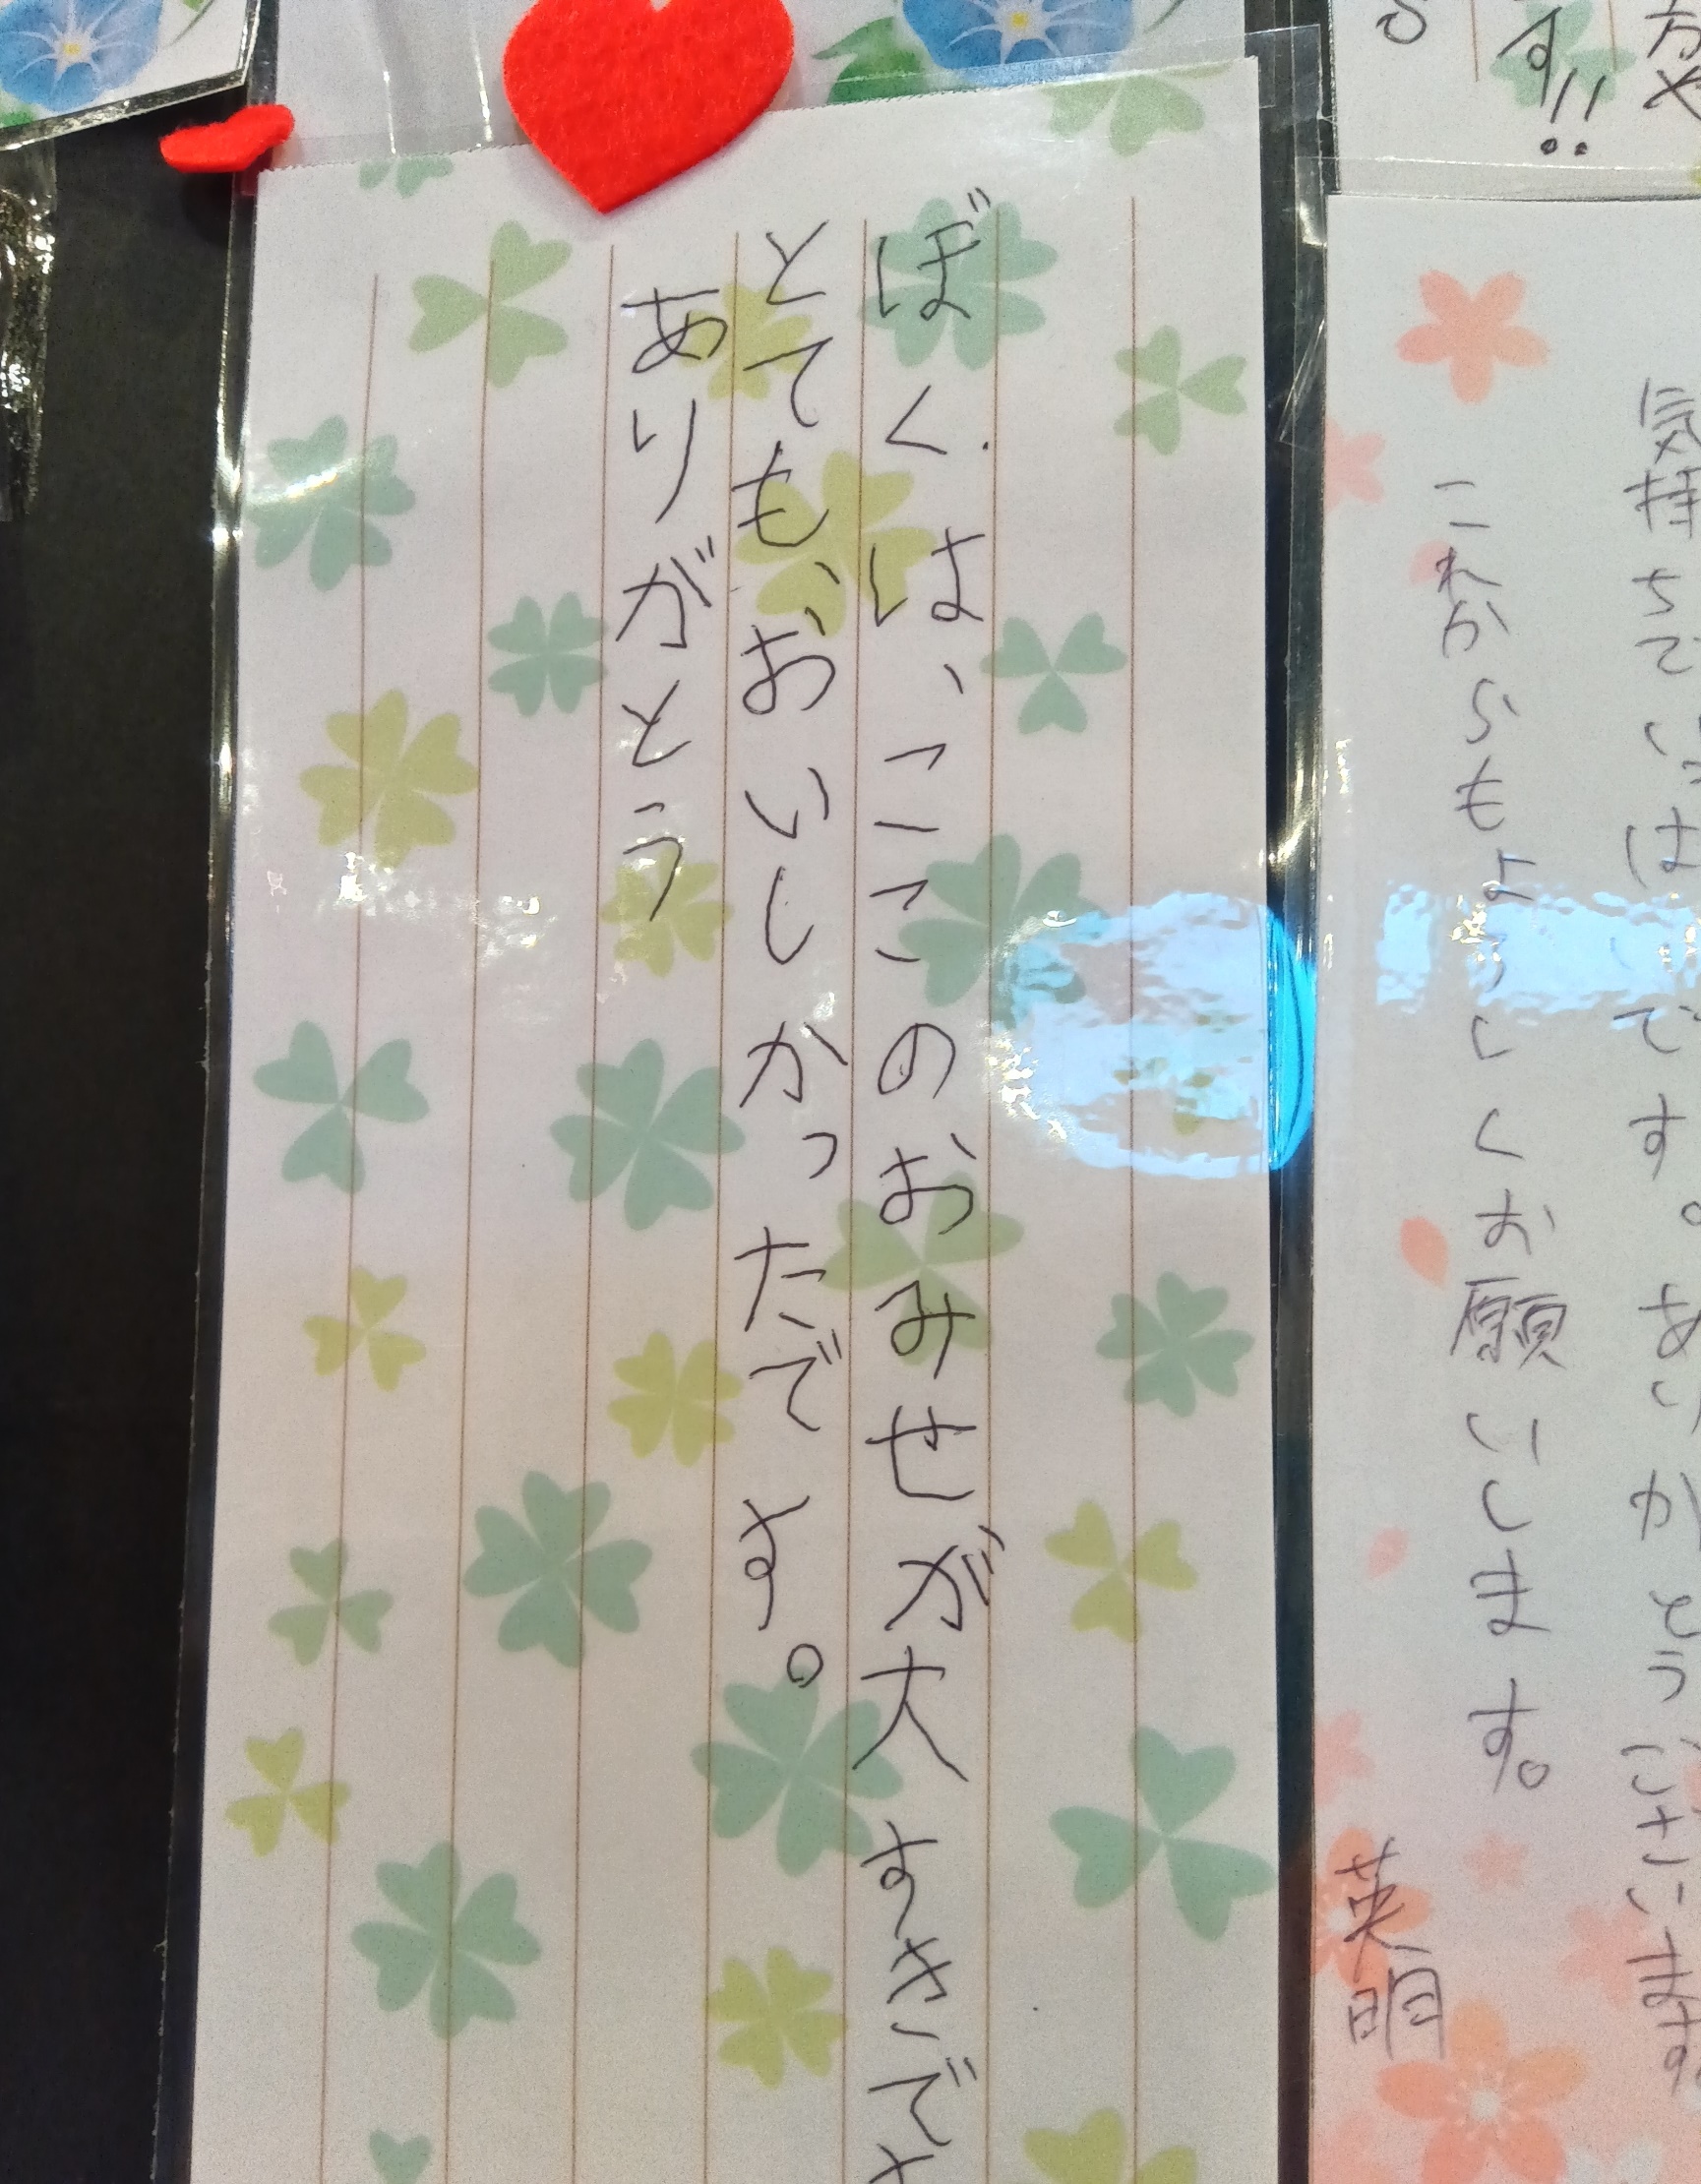 方や
す!!
る
気持ちでいっぱいです。ありがとうございます
これからもよろしくお願いします。
英明
ぼくは、ここのおみせが大すきです
とても、おいしかったです。
ありがとう